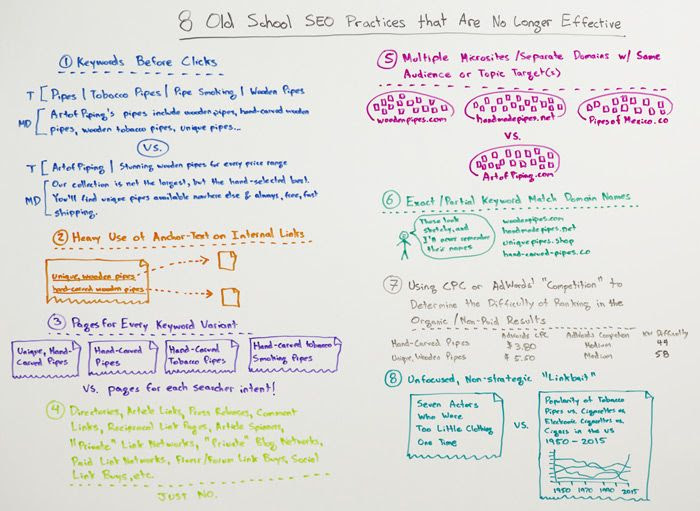 8 Old School SEO Practices that Are No Longer Effective
1 Keywords Before Clicks
T [ Pipes | Tobacco Pipes | Pipe Smoking | Wooden Pipes
MD [ Art of Piping's pipes include wooden pipes, hand-carved wooden
pipes, wooden tobacco pipes, unique pipes...
VS.
T [ Art of Piping | Stunning wooden pipes for every price range
MD [ Our collection is not the largest, but the hand-selected best.
You'll find unique pipes available nowhere else & always, free, fast
shipping.
2 Heavy Use of Anchor-Text on Internal Links
Unique, wooden pipes
hand-carved wooden pipes
3 Pages for Every Keyword Variant
Unique, Hand-
Carved Pipes
Hand-Carved
Pipes
Hand-Carved
Tobacco Pipes
Hand-Carved tobacco
Smoking Pipes
VS. pages for each searcher intent!
4 Directories, Article Links, Press Releases, Comment
Links, Reciprocal Link Pages, Article Spinners,
"Private" Link Networks, "Private" Blog Networks,
Paid Link Networks, Fiverr/Forum Link Buys, Social
Link Buys, etc.
JUST NO.
5 Multiple Microsites/Separate Domains w/ Same
Audience or Topic Target(s)
woodenpipes.com
handmadepipes.net
PipesofMexico.co
VS.
ArtofPiping.com
6 Exact/Partial Keyword Match Domain Names
These look
sketchy, and
I'll never remember
their names
woodenpipes.com
handmadepipes.net
uniquepipes.shop
hand-carved-pipes.co
7 Using CPC or AdWords' "Competition" to
Determine the Difficulty of Ranking in the
Organic/Non-Paid Results
Adwords CPC AdWords Competition KW Difficulty
Hand-Carved Pipes $3.80 Medium 49
Unique, Wooden Pipes $5.50 Medium 58
8 Unfocused, Non-strategic "Linkbait"
Seven Actors
Who Wore
Too Little Clothing
One Time
VS.
Popularity of Tobacco
Pipes vs. Cigarettes vs.
Electronic Cigarettes vs.
Cigars in the US
1950-2015
1950 1970 1990 2015